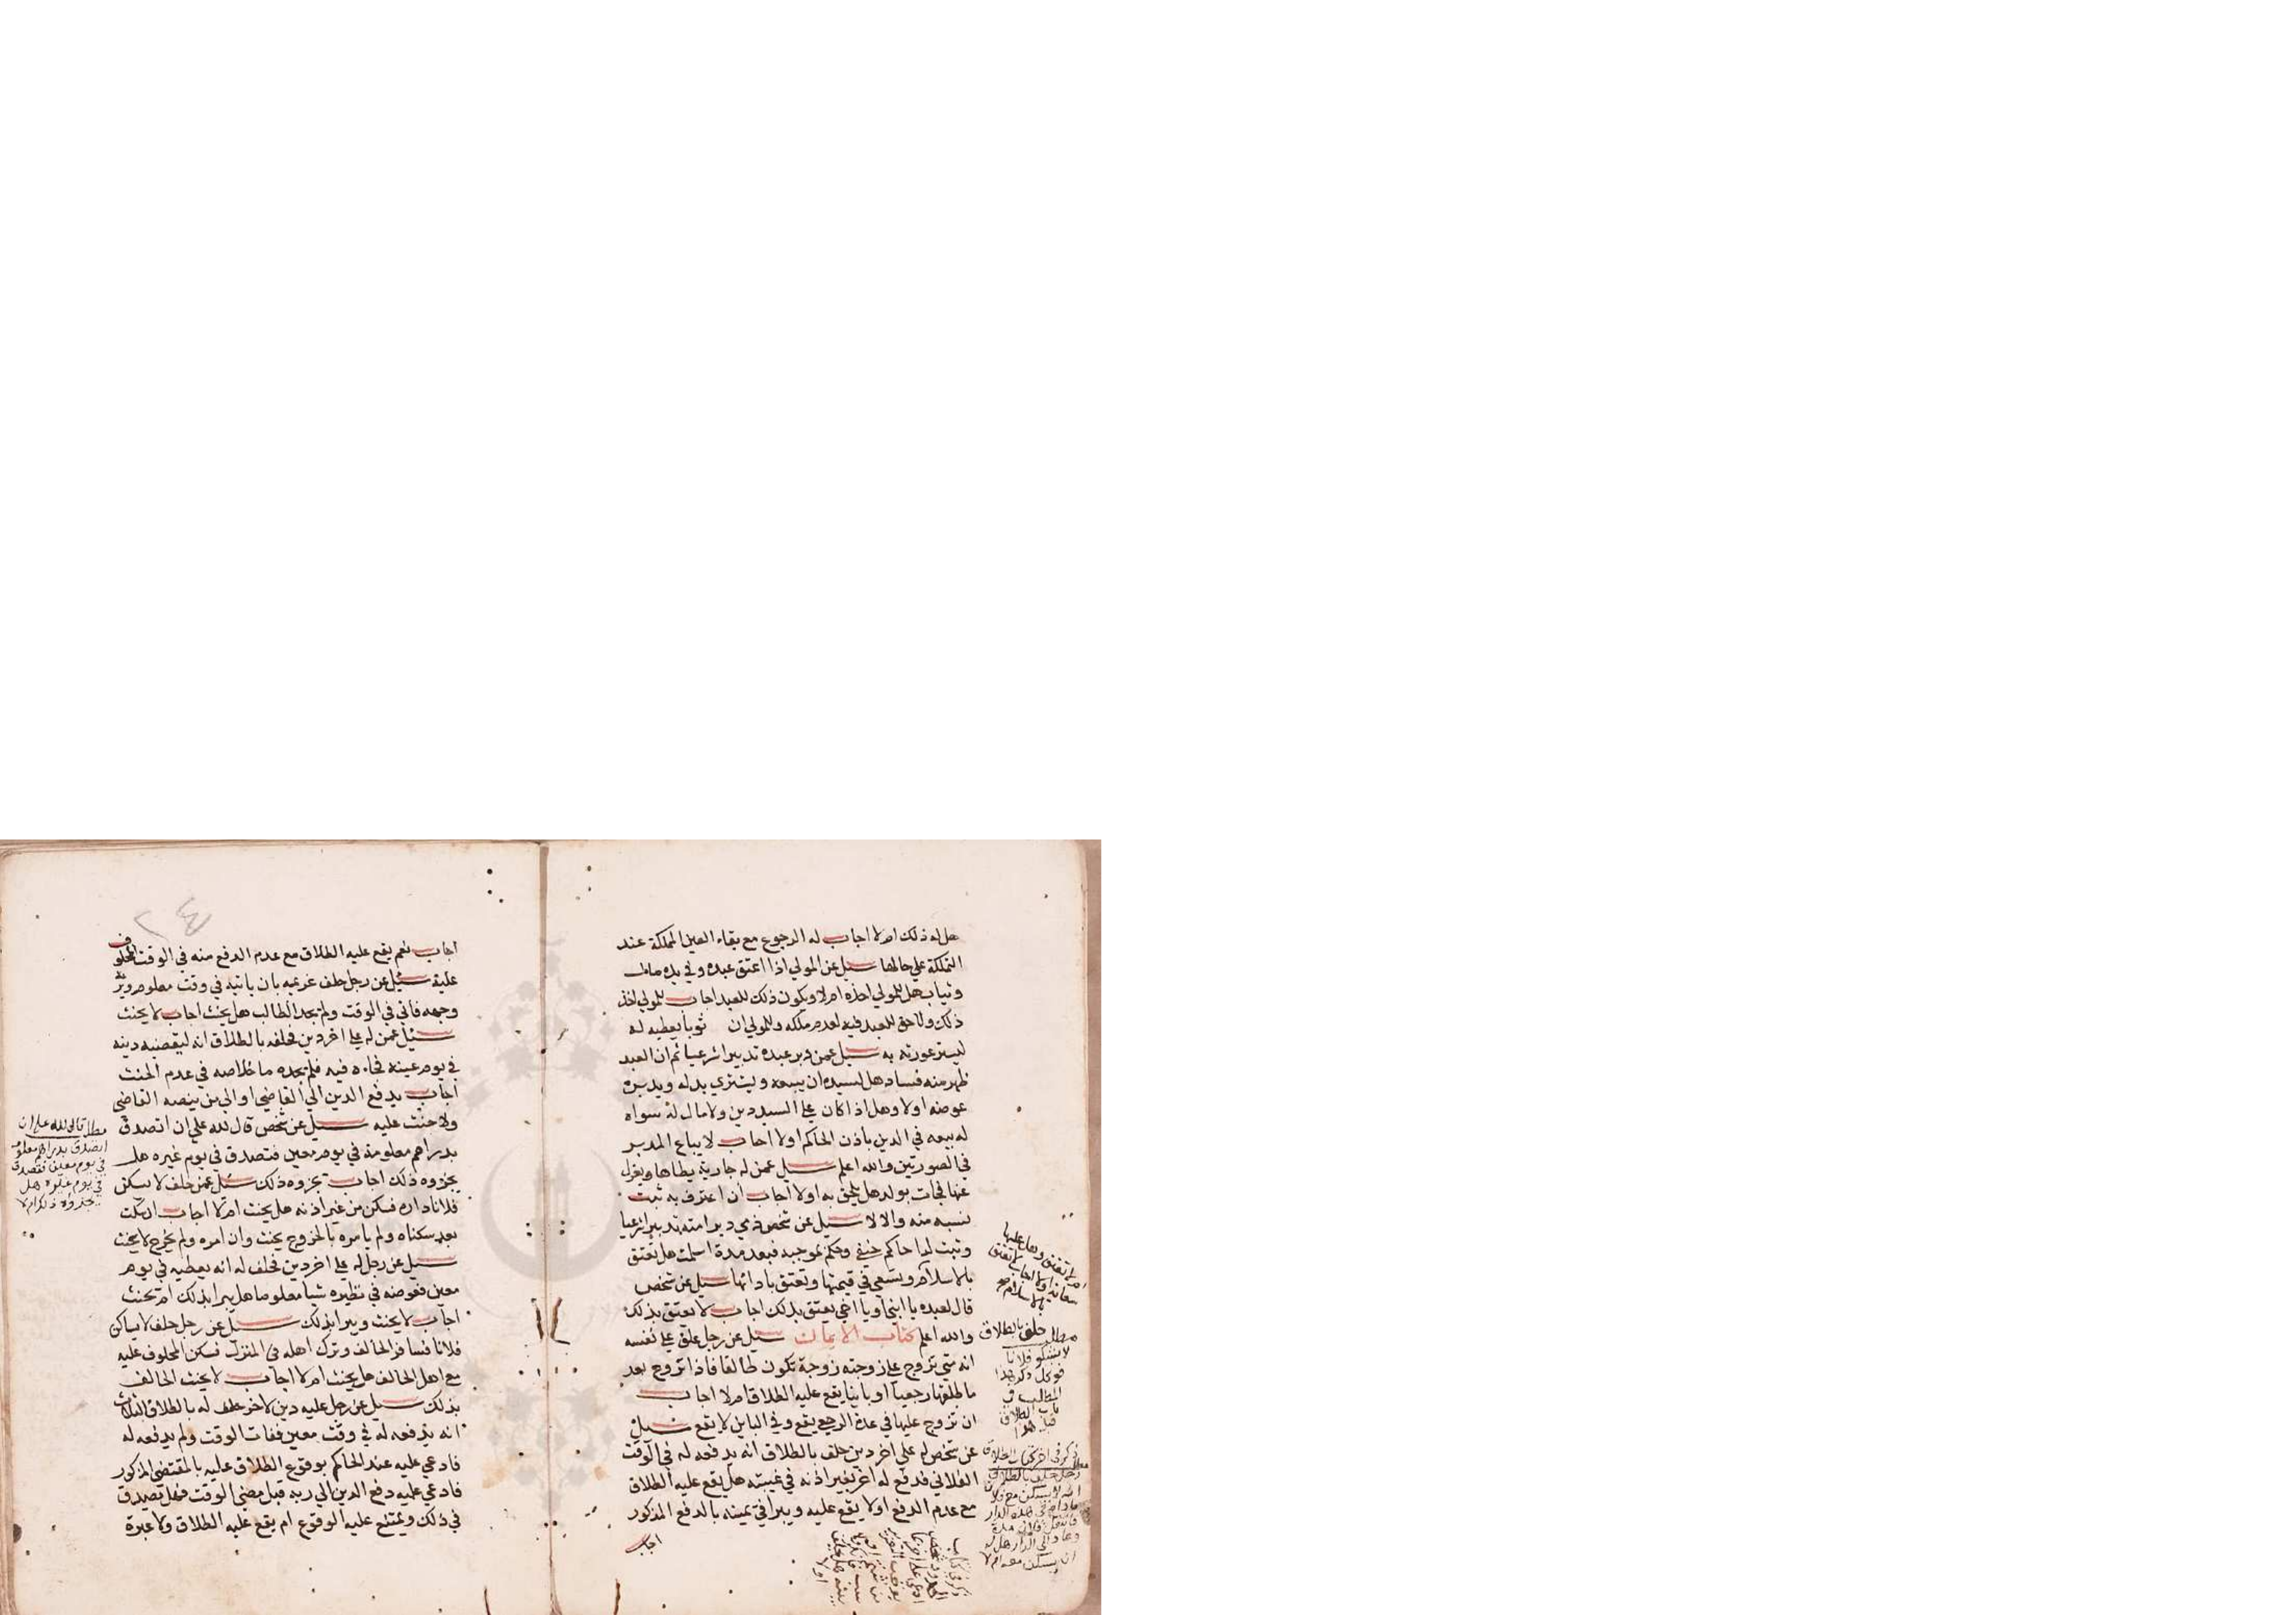 هل له ذلك ام لا اجاب له الرجوع مع بقاء العين المملكة عند
التملكة علي حالها سيل عن المولي اذا اعتق عبده وفي يده مال
وثياب هل للمولي اخذه ام لا ويكون ذلك للعبد اجاب للمولي اخذ
ذلك ولا حق للعبد فيه لعدم ملكه وللمولي ان ثوبا يعطيه له
ليستر عورته به سيل عمن دبر عبده تدبيرا شرعيا ثم ان العبد
ظهر منه فساد هل لسيده ان يبيعه ويشتري بدله ويدبره
عوضه اولا وهل اذا كان علي السيد دين ولا مال له سواه
له بيعه في الدين باذن الحاكم اولا اجاب لا يباع المدبر
في الصورتين والله اعلم سيل عمن له جارية يطاها ويعزل
عنها فجات بولد هل يلحق به اولا اجاب ان اعترف به ثبت
نسبه منه والا لا سيل عن شخص ذمي دبر امته تدبيرا شرعيا
وثبت لدا حاكم حنفي وحكم بموجبه فبعد مدة اسلمت هل تعتق
بالاسلام وتسعي في قيمتها وتعتق بادائها سيل عن شخص
قال لعبده يا ابني او يا اخي يعتق بذلك اجاب لا يعتق بذلك
والله اعلم كتاب الايمان سيل عن رجل علق علي نفسه
انه متي تزوج علي زوجته زوجة تكون طالقا فاذا تزوج بعد
ما طلقها رجعيا او باينا يقع عليه الطلاق ام لا اجاب
ان تزوج عليها في عدة الرجعي يقع وفي الباين لا يقع سيل
عن شخص له علي اخر دين حلف بالطلاق انه يدفعه له في الوقت
الفلاني فدفع له اخر بغير اذنه في غيبته هل يقع عليه الطلاق
مع عدم الدفع اولا يقع عليه ويبرا في يمينه بالدفع المذكور
اجاب
ام لا تعتق وهل عليها
سعاية اولا اجاب لا تعتق
بالاسلام صح
مطلب حلف بالطلاق
لا يشكو فلانا
فوكل ذكر هذا
المطلب في
باب الطلاق
قبل هذا
ذكر في اخر كتاب الطلاق
رجل حلف بالطلاق
انه لا يسكن مع فلان
ما دام في هذه الدار
فانتقل فلان مدة
وعاد الي الدار هل له
ان يسكن معه ام لا
٢٤
اجاب نعم يقع عليه الطلاق مع عدم الدفع منه في الوقت المحلوف
عليه سيل عن رجل حلف غريمه بان ياتيه في وقت معلوم ويريه
وجهه فاتي في الوقت ولم يجد الطالب هل يحنث اجاب لا يحنث
سيل عمن له علي اخر دين فحلفه بالطلاق انه ليقضينه دينه
في يوم عينه فجاءه فيه فلم يجده ما خلاصه في عدم الحنث
اجاب يدفع الدين الي القاضي او الي من ينصبه القاضي
ولا حنث عليه سيل عن شخص قال لله علي ان اتصدق
بدراهم معلومة في يوم معين فتصدق في يوم غيره هل
يجزوه ذلك اجاب يجزوه ذلك سيل عمن حلف لا يسكن
فلانا داره فسكن من غير اذنه هل يحنث ام لا اجاب ان سكت
بعد سكناه ولم يامره بالخروج يحنث وان امره ولم يخرج لا يحنث
سيل عن رجل له علي اخر دين فحلف له انه يعطيه في يوم
معين فعوضه في نظيره شيا معلوما هل يبرا بذلك ام يحنث
اجاب لا يحنث ويبرا بذلك سيل عن رجل حلف لا يساكن
فلانا فسافر الحالف وترك اهله في المنزل فسكن المحلوف عليه
مع اهل الحالف هل يحنث ام لا اجاب لا يحنث الحالف
بذلك سيل عن رجل عليه دين لاخر حلف له بالطلاق الثلاث
انه يدفعه له في وقت معين ففات الوقت ولم يدفعه له
فادعي عليه عند الحاكم بوقوع الطلاق عليه بالمقتضي المذكور
فادعي عليه دفع الدين الي ربه قبل مضي الوقت فهل يصدق
في ذلك ويمتنع عليه الوقوع ام يقع عليه الطلاق ولا عبرة
مطلب قال لله علي ان
اتصدق بدراهم معلومة
في يوم معين فتصدق
في يوم غيره هل
يجزوه ذلك ام لا